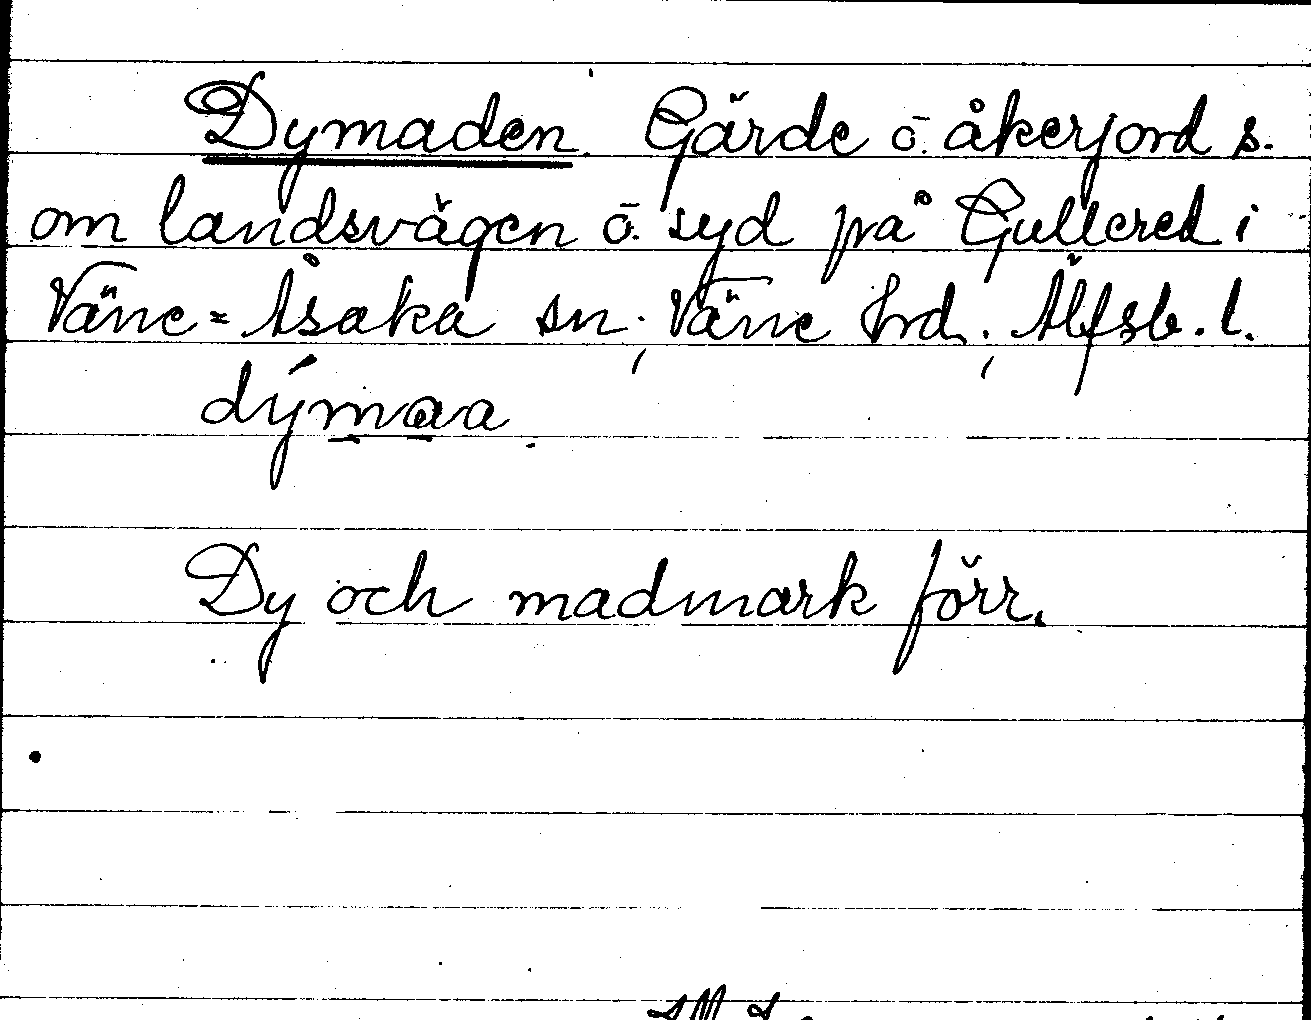 Dymaden. Gärde o. åkerjord s.
om landsvägen o. syd på Gullered i
Väne-Åsaka sn., Väne hrd., Älfsb. l.
dýmaa
Dy och madmark förr.